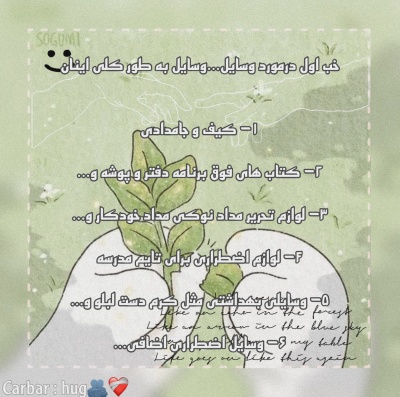 SOGUMI
خب اول درمورد وسایل...وسایل به طور کلی اینان
۱- کیف و جامدادی
۲- کتاب های فوق برنامه دفتر و پوشه و...
۳- لوازم تحریر مداد نوکی مداد،خودکار و...
۴- لوازم اضطراری برای تایم مدرسه
۵- وسایلی بهداشتی مثل کرم دست لبلو و...
Like an echo in the forest
Like an arrow in the blue sky
۶- وسایل اضطراری اضافی...
my table
Like goes on like this again
Carbar : hug🫂❤️‍🩹